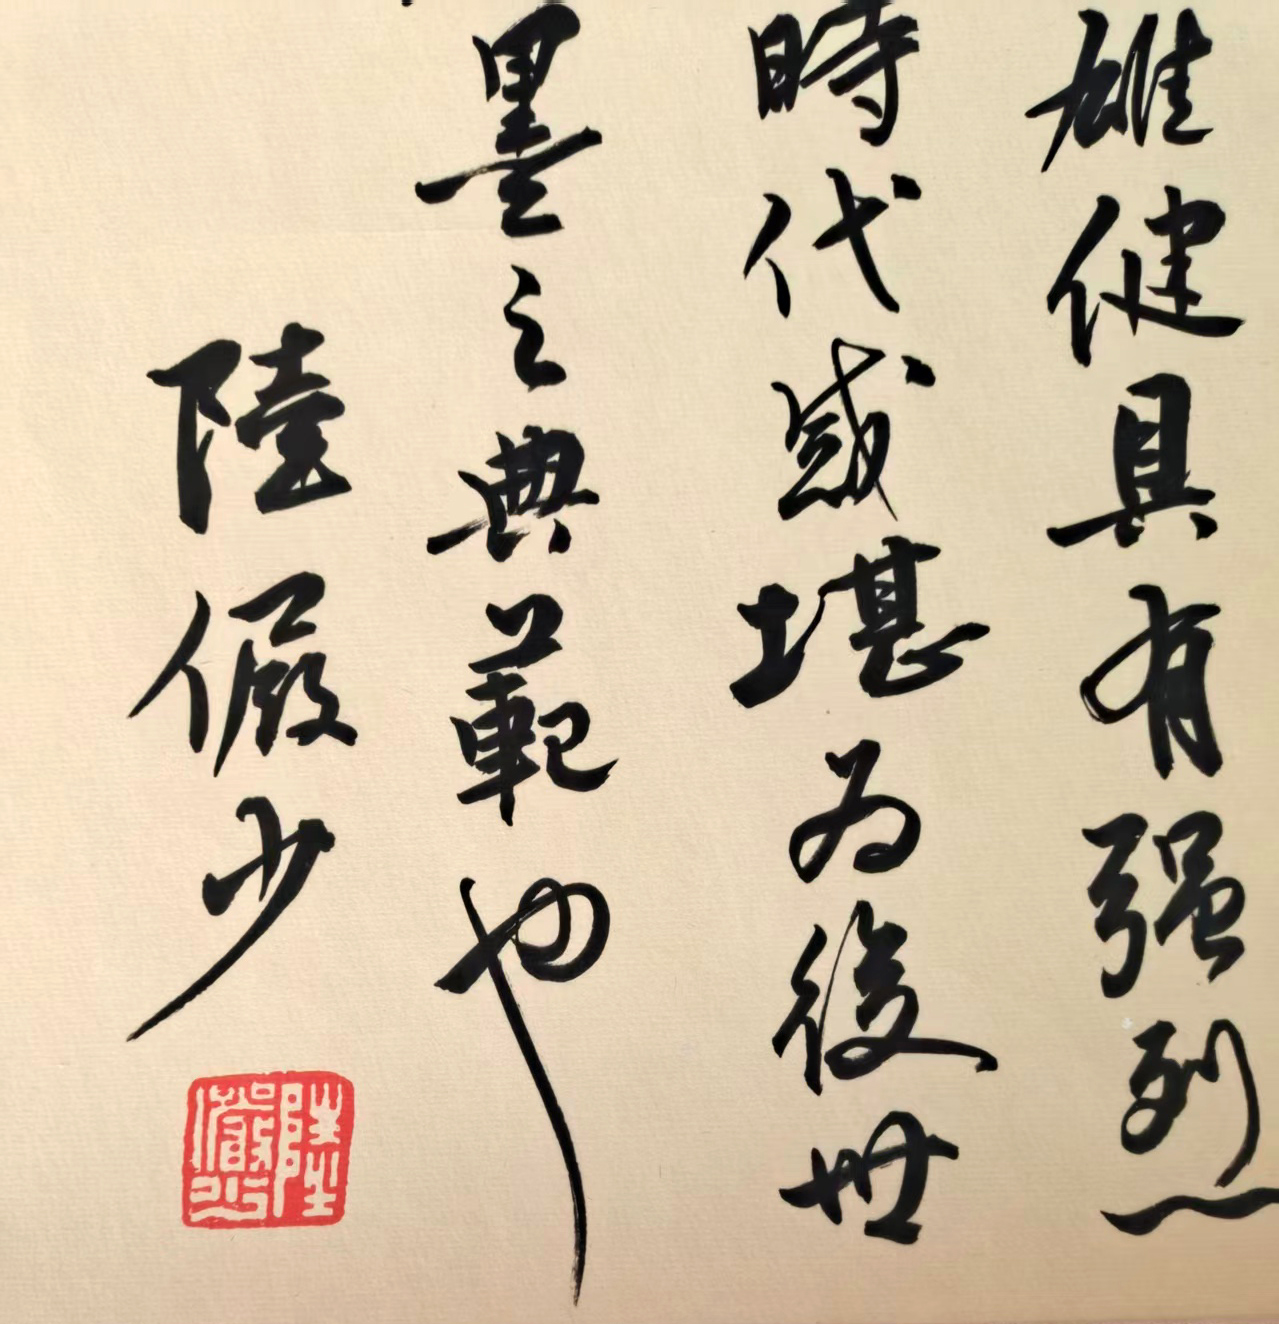 雄健具有强烈
時代感堪为後世
墨之典範也
陸儼少
陸儼少